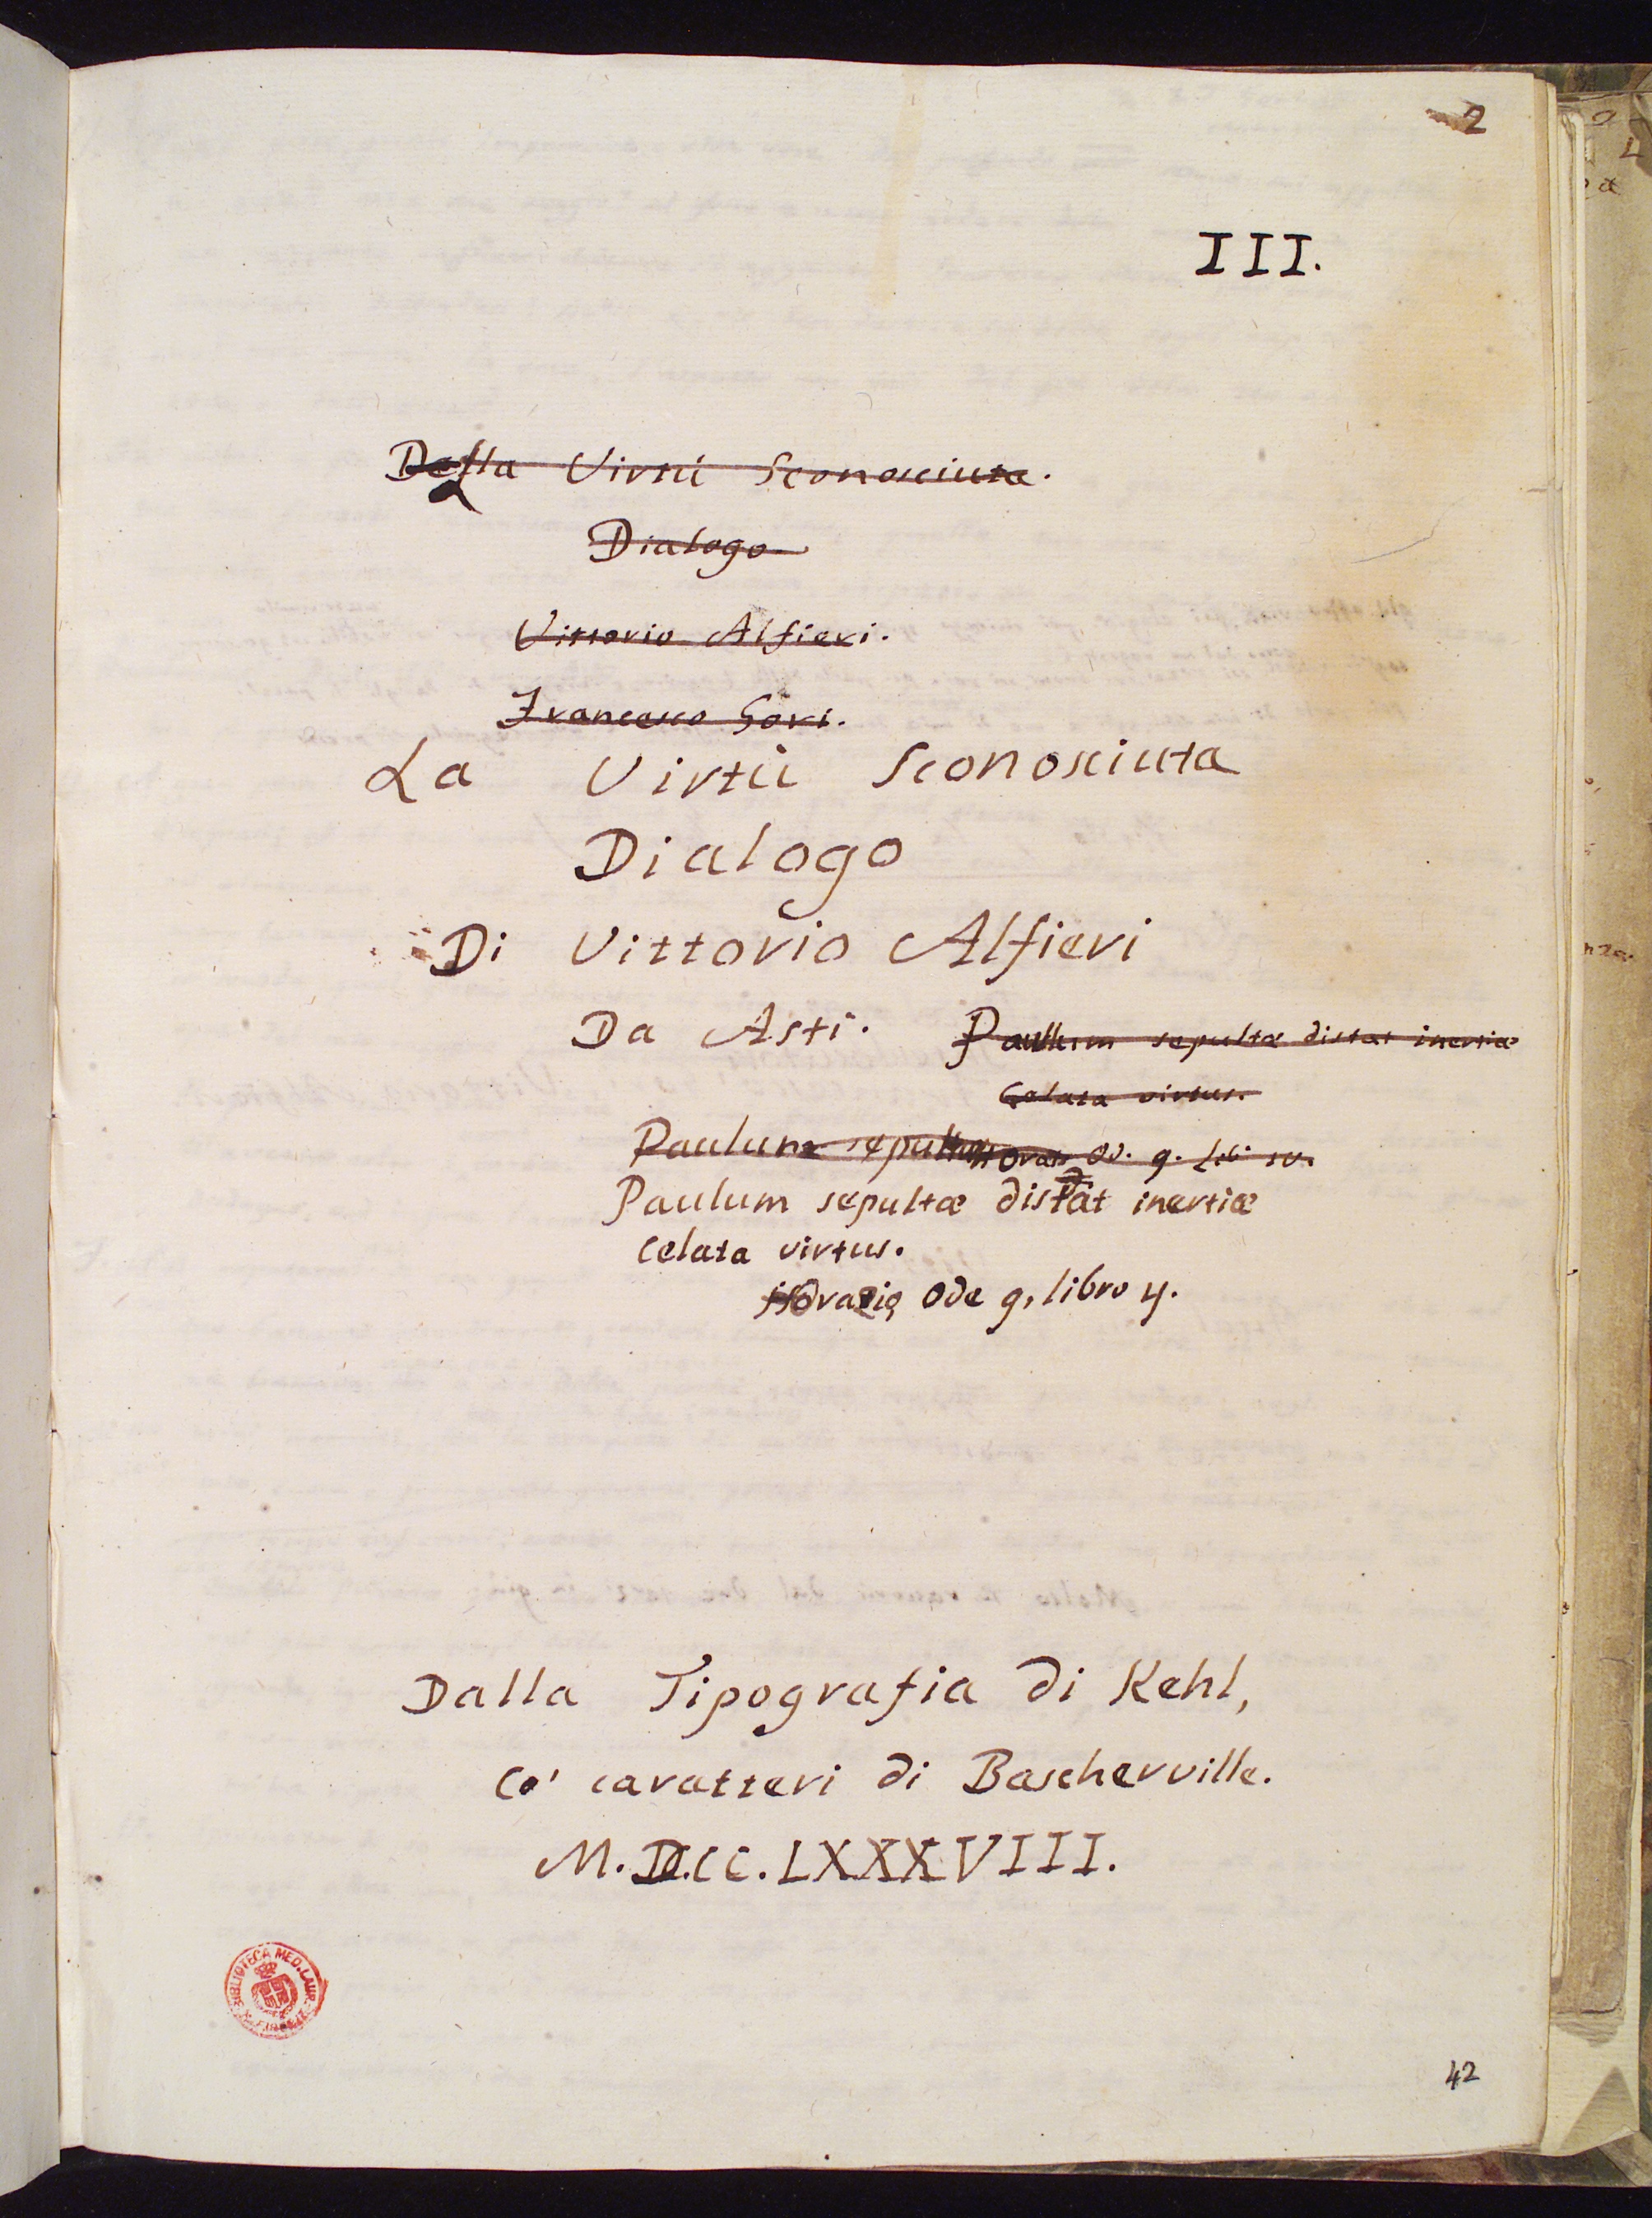 2
III.
Della Virtù Sconosciuta.
Dialogo
Vittorio Alfieri.
Francesco Gori.
La Virtù Sconosciuta
Dialogo
Di Vittorio Alfieri
Da Asti.
Paullum sepultæ distat inertiæ
Celata virtus.
Paulum Od. 9. Lib. IV.
Paulum sepultæ distat inertiæ
Celata virtus.
Orazio, Ode 9, libro 4.
Dalla Tipografia di Kehl,
Co' caratteri di Bascherville.
M.D.CC.LXXXVIII.
BIBLIOTECA MED. LAUR.
42